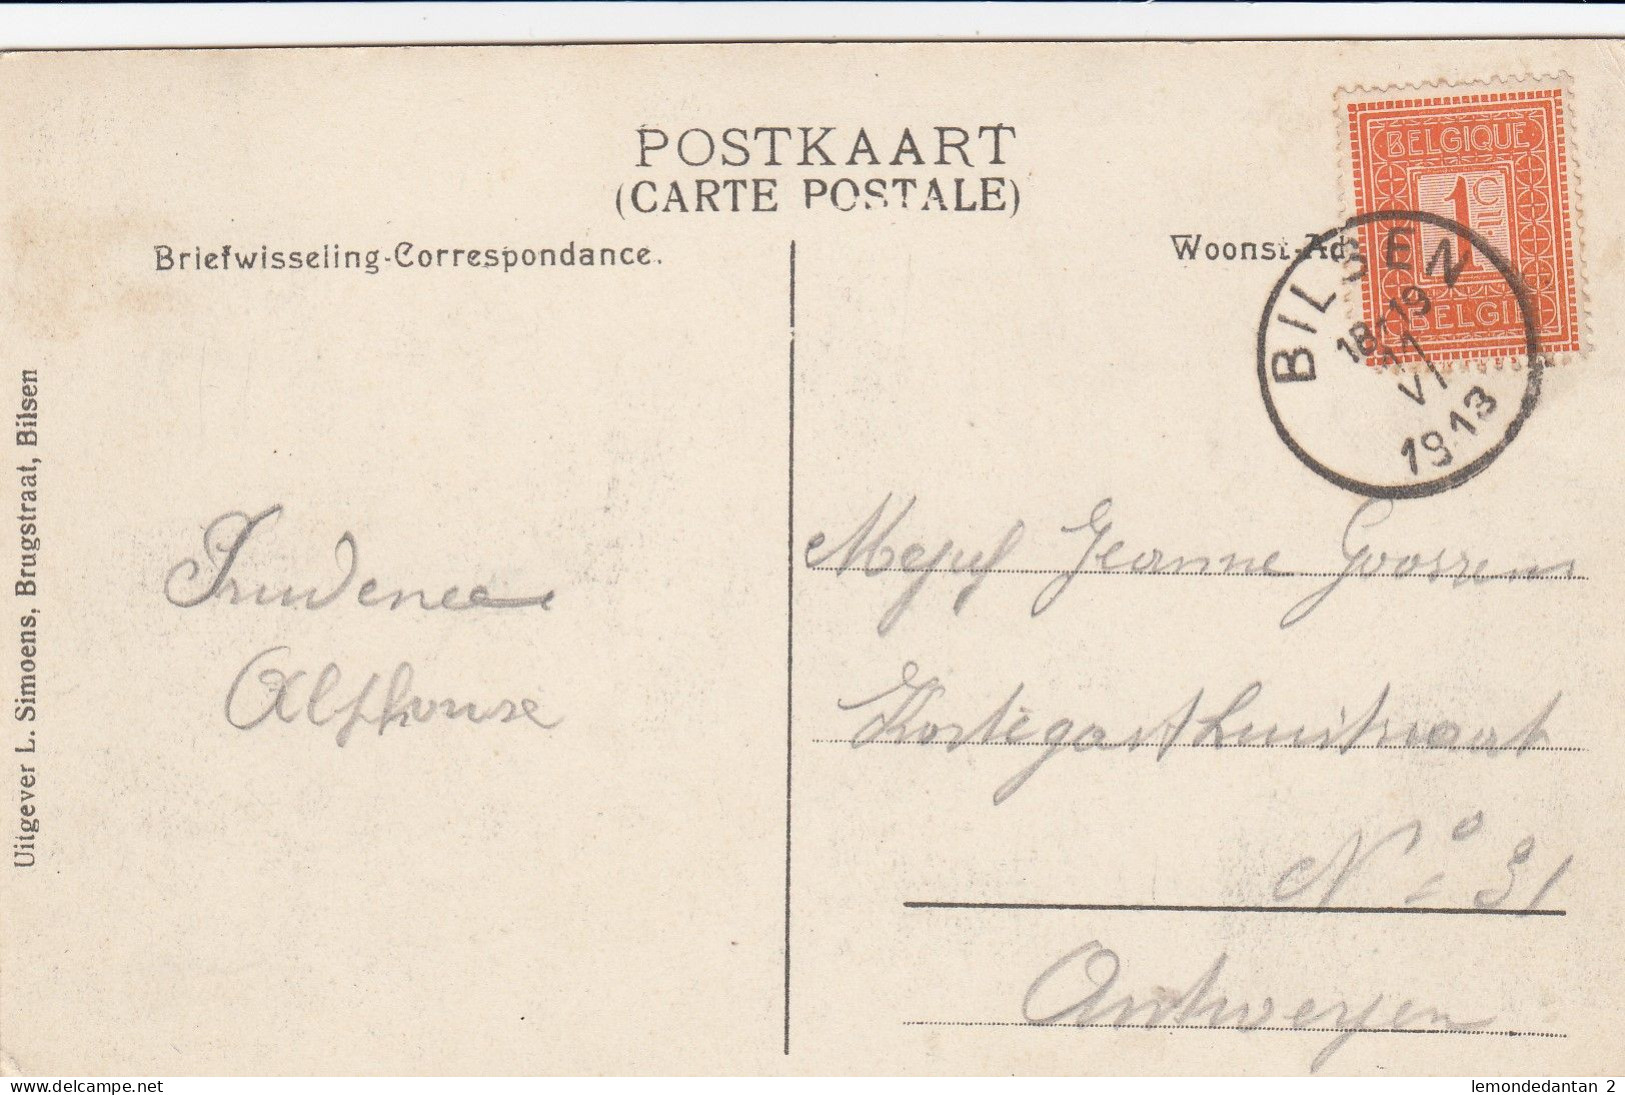 POSTKAART
(CARTE POSTALE)
Briefwisseling-Correspondance.
Woonst-Ad
BELGIQUE
1 C
BELGIE
BILSEN
18-19
11
VI
1913
Uitgever L. Simoens, Brugstraat, Bilsen
Prudence
Alphonse
Mejuf Jeanne Goossens
Kortegasthuistraat
No 31
Antwerpen
delcampe.net
lemondedantan 2